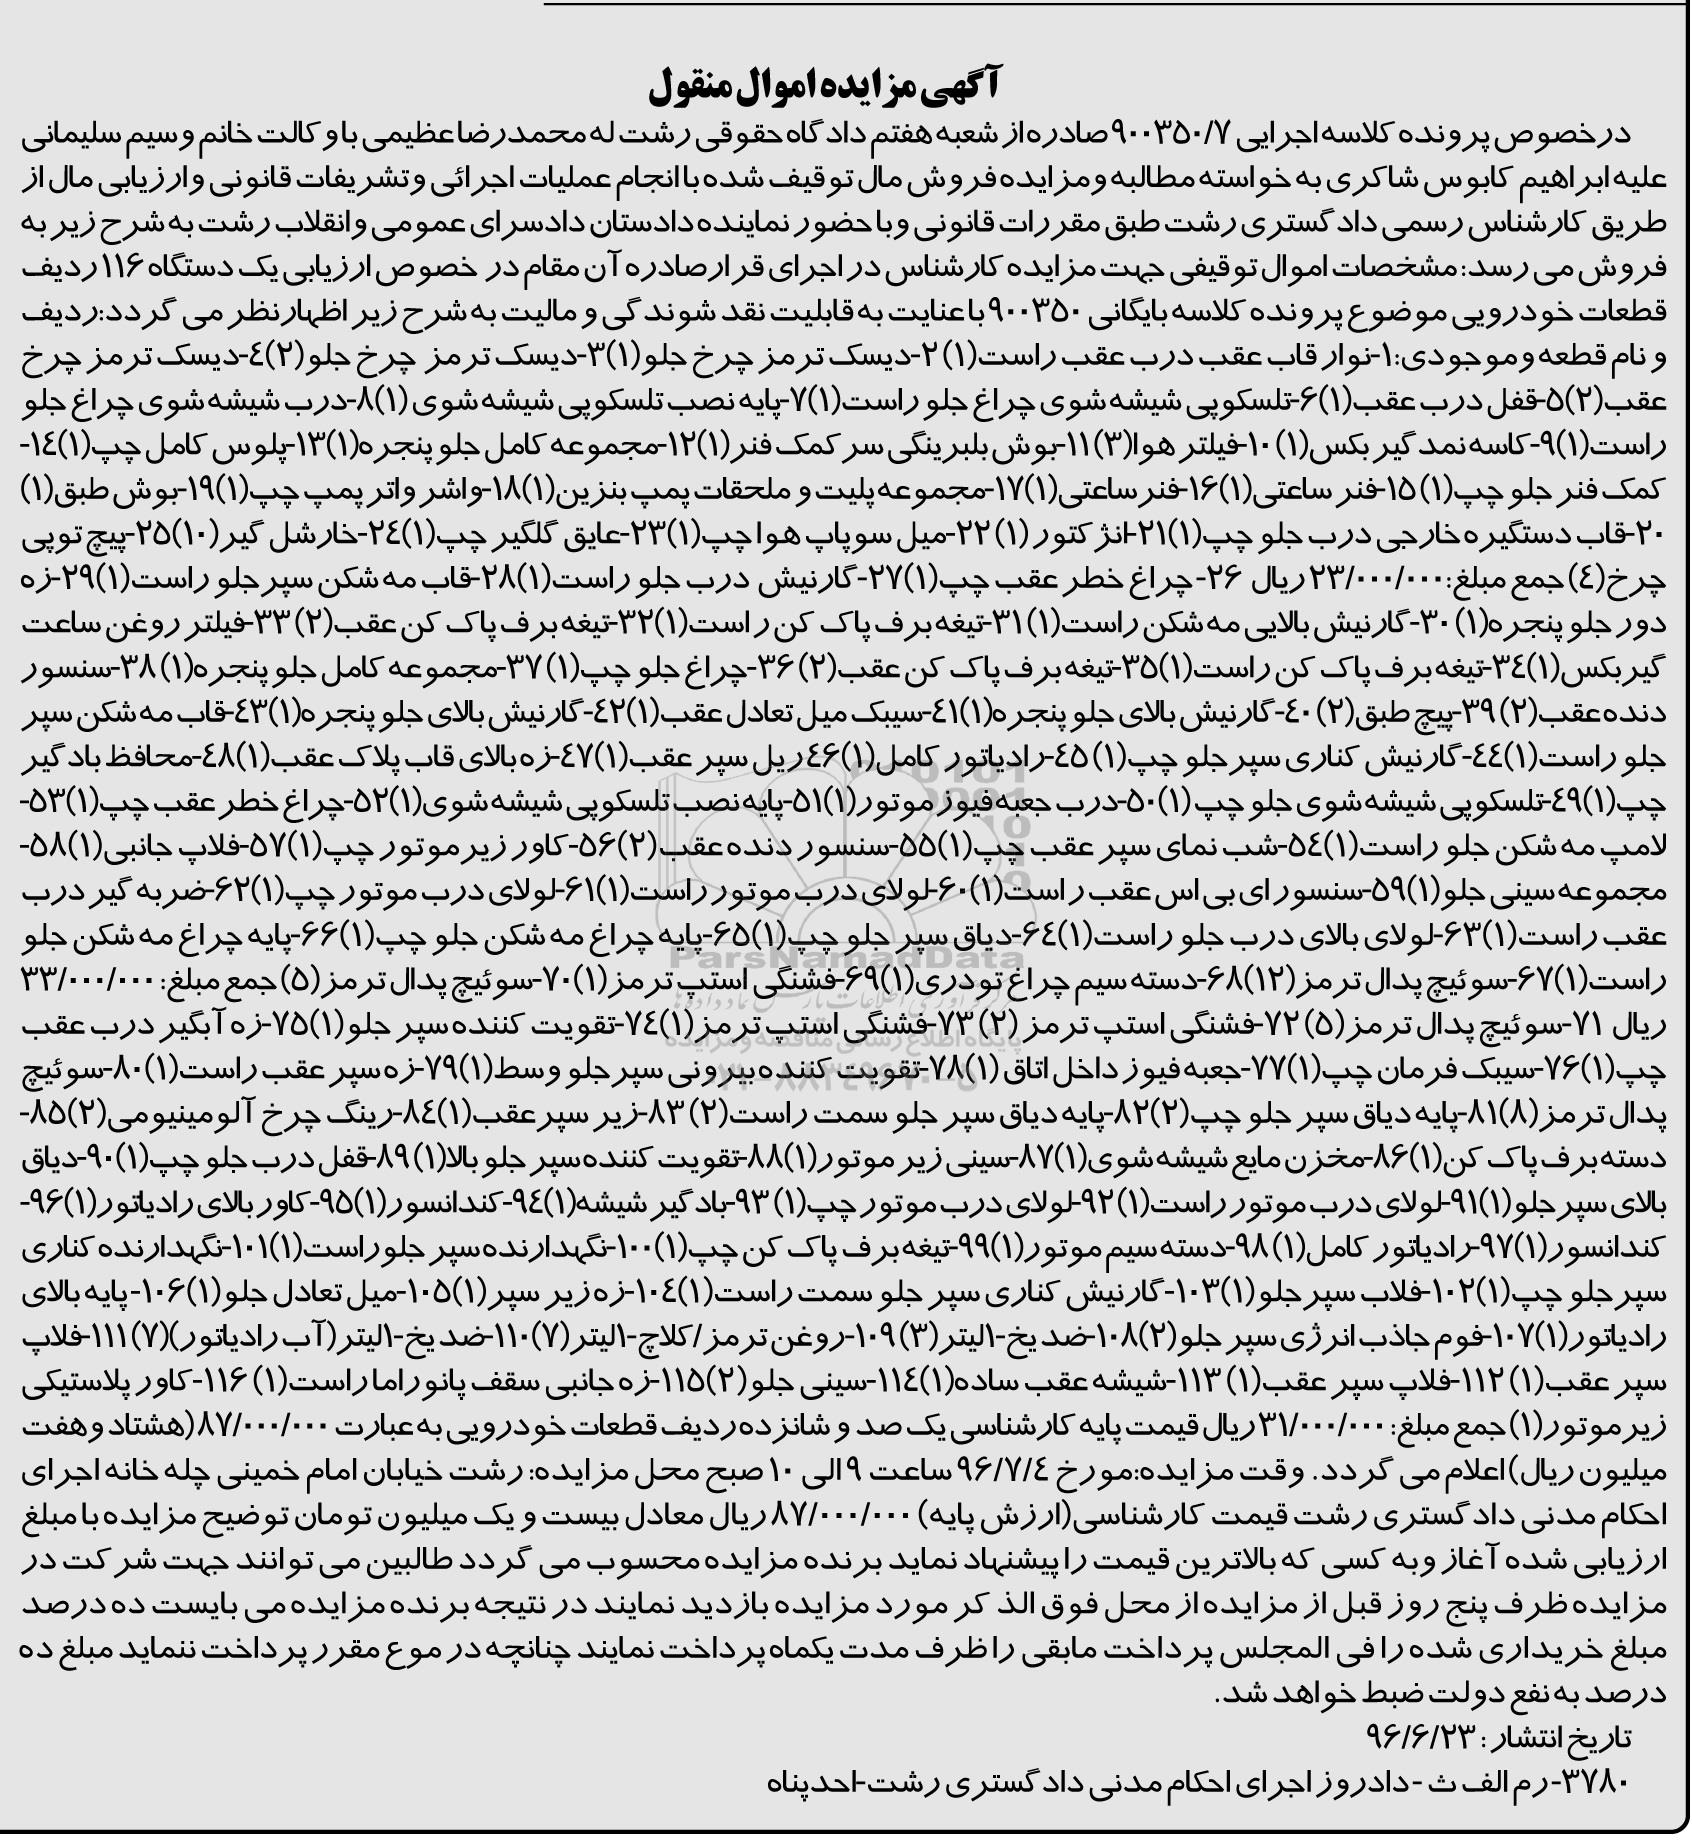 آگهی مزایده اموال منقول
درخصوص پرونده کلاسه اجرایی ۹۰۰۳۵۰/۷ صادره از شعبه هفتم دادگاه حقوقی رشت له محمدرضا عظیمی با وکالت خانم وسیم سلیمانی
علیه ابراهیم کابوس شاکری به خواسته مطالبه ومزایده فروش مال توقیف شده باانجام عملیات اجرائی وتشریفات قانونی وارزیابی مال از
طریق کارشناس رسمی دادگستری رشت طبق مقررات قانونی وباحضور نماینده دادستان دادسرای عمومی وانقلاب رشت به شرح زیر به
فروش می رسد:مشخصات اموال توقیفی جهت مزایده کارشناس در اجرای قرارصادره آن مقام در خصوص ارزیابی یک دستگاه ۱۱۶ ردیف
قطعات خودرویی موضوع پرونده کلاسه بایگانی ۹۰۰۳۵۰ باعنایت به قابلیت نقد شوندگی و مالیت به شرح زیر اظهارنظر می گردد:ردیف
و نام قطعه وموجودی:۱-نوار قاب عقب درب عقب راست(۱) ۲-دیسک ترمز چرخ جلو(۱)۳-دیسک ترمز چرخ جلو(۲)٤-دیسک ترمز چرخ
عقب(۲)۵-قفل درب عقب(۱)۶-تلسکوپی شیشه شوی چراغ جلو راست(۱)۷-پایه نصب تلسکوپی شیشه شوی (۱)۸-درب شیشه شوی چراغ جلو
راست(۱)۹-کاسه نمد گیر بکس(۱) ۱۰-فیلتر هوا(۳)۱۱-بوش بلبرینگی سر کمک فنر(۱)۱۲-مجموعه کامل جلو پنجره(۱)۱۳-پلوس کامل چپ(۱)۱٤-
کمک فنر جلو چپ(۱)۱۵-فنر ساعتی(۱)۱۶-فنرساعتی(۱)۱۷-مجموعه پلیت و ملحقات پمپ بنزین(۱)۱۸-واشر واتر پمپ چپ(۱)۱۹-بوش طبق(۱)
۲۰-قاب دستگیره خارجی درب جلو چپ(۱)۲۱-انژکتور (۱) ۲۲-میل سوپاپ هوا چپ(۱)۲۳-عایق گلگیر چپ(۱)۲٤-خارشل گیر(۱۰)۲۵-پیچ توپی
چرخ(٤) جمع مبلغ:۲۳/۰۰۰/۰۰۰ ریال ۲۶- چراغ خطر عقب چپ(۱)۲۷-گارنیش درب جلو راست(۱)۲۸-قاب مه شکن سپرجلو راست(۱)۲۹-زه
دور جلو پنجره(۱) ۳۰-گارنیش بالایی مه شکن راست(۱)۳۱-تیغه برف پاک کن راست(۱)۳۲-تیغه برف پاک کن عقب(۲)۳۳-فیلتر روغن ساعت
گیربکس(۱)۳٤-تیغه برف پاک کن راست(۱)۳۵-تیغه برف پاک کن عقب(۲)۳۶-چراغ جلو چپ(۱)۳۷-مجموعه کامل جلو پنجره(۱)۳۸-سنسور
دنده عقب(۲)۳۹-پیچ طبق(۲)٤۰-گارنیش بالای جلو پنجره(۱)٤۱-سیبک میل تعادل عقب(۱)٤۲-گارنیش بالای جلو پنجره(۱)٤۳-قاب مه شکن سپر
جلو راست(۱)٤٤-گارنیش کناری سپرجلو چپ(۱) ٤۵-رادیاتور کامل(۱)٤۶ریل سپر عقب(۱)٤۷-زه بالای قاب پلاک عقب(۱)٤۸-محافظ بادگیر
چپ(۱)٤۹-تلسکوپی شیشه شوی جلو چپ (۱)۵۰-درب جعبه فیوز موتور(۱)۵۱-پایه نصب تلسکوپی شیشه شوی(۱)۵۲-چراغ خطر عقب چپ(۱)۵۳-
لامپ مه شکن جلو راست(۱)۵٤-شب نمای سپر عقب چپ(۱)۵۵-سنسور دنده عقب(۲)۵۶-کاور زیرموتور چپ(۱)۵۷-فلاپ جانبی(۱)۵۸-
مجموعه سینی جلو(۱)۵۹-سنسور ای بی اس عقب راست(۱)۶۰-لولای درب موتور راست(۱)۶۱-لولای درب موتور چپ(۱)۶۲-ضربه گیر درب
عقب راست(۱)۶۳-لولای بالای درب جلو راست(۱)۶٤-دیاق سپر جلو چپ(۱)۶۵-پایه چراغ مه شکن جلو چپ(۱)۶۶-پایه چراغ مه شکن جلو
راست(۱)۶۷-سوئیچ پدال ترمز(۱۲)۶۸-دسته سیم چراغ تودری(۱)۶۹-فشنگی استپ ترمز(۱)۷۰-سوئیچ پدال ترمز(۵) جمع مبلغ: ۳۳/۰۰۰/۰۰۰
ریال ۷۱-سوئیچ پدال ترمز(۵)۷۲-فشنگی استپ ترمز (۲)۷۳-فشنگی استپ ترمز(۱)۷٤-تقویت کننده سپر جلو(۱)۷۵-زه آبگیر درب عقب
چپ(۱)۷۶-سیبک فرمان چپ(۱)۷۷-جعبه فیوز داخل اتاق (۱)۷۸-تقویت کننده بیرونی سپرجلو وسط(۱)۷۹-زه سپر عقب راست(۱)۸۰-سوئیچ
پدال ترمز(۸)۸۱-پایه دیاق سپر جلو چپ(۲)۸۲-پایه دیاق سپر جلو سمت راست(۲)۸۳-زیر سپرعقب(۱)۸٤-رینگ چرخ آلومینیومی(۲)۸۵-
دسته برف پاک کن(۱)۸۶-مخزن مایع شیشه شوی(۱)۸۷-سینی زیر موتور(۱)۸۸-تقویت کننده سپر جلو بالا(۱)۸۹-قفل درب جلو چپ(۱)۹۰-دیاق
بالای سپرجلو(۱)۹۱-لولای درب موتور راست(۱)۹۲-لولای درب موتور چپ(۱)۹۳-بادگیر شیشه(۱)۹٤-کندانسور(۱)۹۵-کاور بالای رادیاتور(۱)۹۶-
کندانسور(۱)۹۷-رادیاتور کامل(۱)۹۸-دسته سیم موتور(۱)۹۹-تیغه برف پاک کن چپ(۱)۱۰۰-نگهدارنده سپر جلوراست(۱)۱۰۱-نگهدارنده کناری
سپرجلو چپ(۱)۱۰۲-فلاب سپرجلو(۱)۱۰۳-گارنیش کناری سپر جلو سمت راست(۱)۱۰٤-زه زیر سپر(۱)۱۰۵-میل تعادل جلو(۱)۱۰۶-پایه بالای
رادیاتور(۱)۱۰۷-فوم جاذب انرژی سپر جلو(۲)۱۰۸-ضد یخ-۱لیتر(۳)۱۰۹-روغن ترمز/کلاچ-۱لیتر(۷)۱۱۰-ضد یخ-۱لیتر(آب رادیاتور)(۷)۱۱۱-فلاپ
سپر عقب(۱)۱۱۲-فلاپ سپر عقب(۱)۱۱۳-شیشه عقب ساده(۱)۱۱٤-سینی جلو(۲)۱۱۵-زه جانبی سقف پانوراما راست(۱)۱۱۶-کاور پلاستیکی
زیرموتور(۱) جمع مبلغ: ۳۱/۰۰۰/۰۰۰ ریال قیمت پایه کارشناسی یک صد و شانزده ردیف قطعات خودرویی به عبارت ۸۷/۰۰۰/۰۰۰ (هشتاد وهفت
میلیون ریال)اعلام می گردد. وقت مزایده:مورخ ۹۶/۷/٤ ساعت ۹ الی ۱۰ صبح محل مزایده: رشت خیابان امام خمینی چله خانه اجرای
احکام مدنی دادگستری رشت قیمت کارشناسی(ارزش پایه) ۸۷/۰۰۰/۰۰۰ ریال معادل بیست و یک میلیون تومان توضیح مزایده با مبلغ
ارزیابی شده آغاز وبه کسی که بالاترین قیمت را پیشنهاد نماید برنده مزایده محسوب می گردد طالبین می توانند جهت شرکت در
مزایده ظرف پنج روز قبل از مزایده از محل فوق الذکر مورد مزایده بازدید نمایند در نتیجه برنده مزایده می بایست ده درصد
مبلغ خریداری شده را فی المجلس پرداخت مابقی را ظرف مدت یکماه پرداخت نمایند چنانچه در موع مقرر پرداخت ننماید مبلغ ده
درصد به نفع دولت ضبط خواهد شد.
تاریخ انتشار: ۹۶/۶/۲۳
۳۷۸۰-رم الف ث -دادروز اجرای احکام مدنی دادگستری رشت-احدپناه
ParsNamadData
پایگاه اطلاع رسانی مناقصه و مزایده